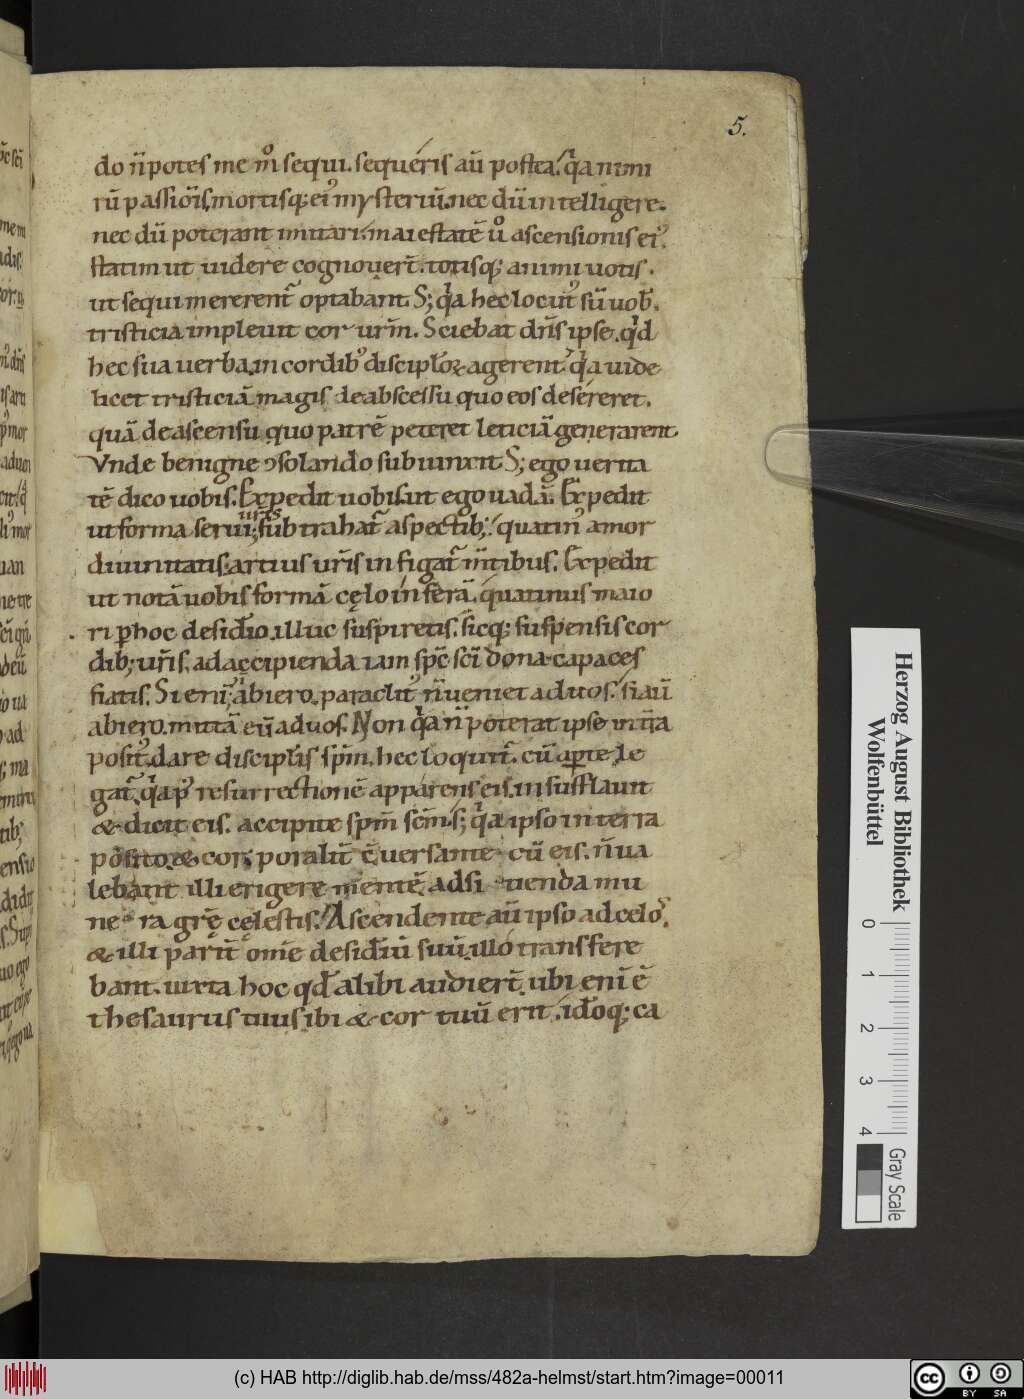 5.
do n̄ potes me m̊ sequi. sequeris aū postea. qͣa nimi
rū passiōīs, mortisq; eiꝰ mysteriū, nec dū intelligere.
nec dū poterant imitari, maiestatē u̅o ascensionis eiꝰ.
statim ut uidere cognouert̄. totisq; animi uotis.
ut sequi mererent᷑ optabant. S; qͣa hec locutꝰ sū uob̄.
tristicia impleuit cor ur̄m. Sciebat dn̄s ipse. qͥd
hec sua uerba, in cordibꝰ disciplo̅ꝝ agerent. qͣa uide
licet tristiciā magis de abscessu quo eos desereret.
quā de ascensu, quo patrē peteret leticiā generarent.
Vnde benigne ꝯsolando subiunxit. S; ego uerita
tē dico uobis. Expedit uobis, ut ego uadā. Expedit
ut forma serui; ur̄is sub trahat᷑ aspectib;. quatinꝰ amor
diuinitatis, artius ur̄is in figat᷑ m̄tibus. Expedit
ut notā uobis formā cęlo inferā. quatinus maio
ri ꝑ hoc desid̄io, illuc suspiretis. sicq; suspensis cor
dib; ur̄is, ad accipienda iam sp̄c sc̄i dona capaces
fiatis. Si eni n̄ abiero. paraclitꝰ n̄ ueniet ad uos. si aū
abiero. mittā eū ad uos. Non qͣa n̄ poterat ipse in tr̄a
positꝰ, dare discipl̄is sp̄m. hec loqut᷑. cū aꝑte le
gat᷑. qͣa pꝰ resurrectionē apparens eis. insufflauit
& dicit eis. accipite sp̄m sc̄m. s; qͣa ipso in terra
posito, & corporalit̄ ꝯuersante cū eis. n̄ ua
lebant illi erigere mentē. ad sitienda mu
nera gr̄ę cęlestis. Ascendente aū ipso ad celoꝰ.
& illi parit̄ om̄e desid̄iū suū, illo transfere
bant. iuxta hoc qd̄ alibi audiert̄. ubi enī ē
thesaurus tuus ibi & cor tuū erit. id̄oq; ca
Herzog August Bibliothek
Wolfenbüttel
0 1 2 3 4
Gray Scale
(c) HAB http://diglib.hab.de/mss/482a-helmst/start.htm?image=00011
cc BY SA